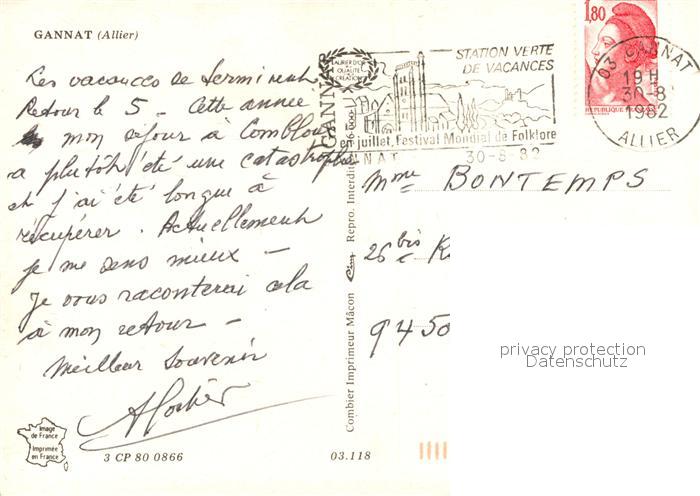 GANNAT (Allier)
Les vacances se terminent
Retour le 5 - Cette année
mon séjour à Combloux
a plutôt été une catastrophe
et j'ai été longue à
récupérer. Actuellement
je me sens mieux -
Je vous raconterai cela
à mon retour -
Meilleur Souvenir
Image
de France
Imprimée
en France
3 CP 80 0866
03.118
Combier Imprimeur Mâcon
Cim
Repro. Interdite
GANNAT
LAURIER D'OR
QUALITE
CREATION
STATION VERTE
DE VACANCES
en juillet, Festival Mondial de Folklore
GANNAT 30-8-82
1,80
REPUBLIQUE
03 GANNAT
19 H
30-8
1982
ALLIER
Mme BONTEMPS
26 bis R
9450
privacy protection
Datenschutz